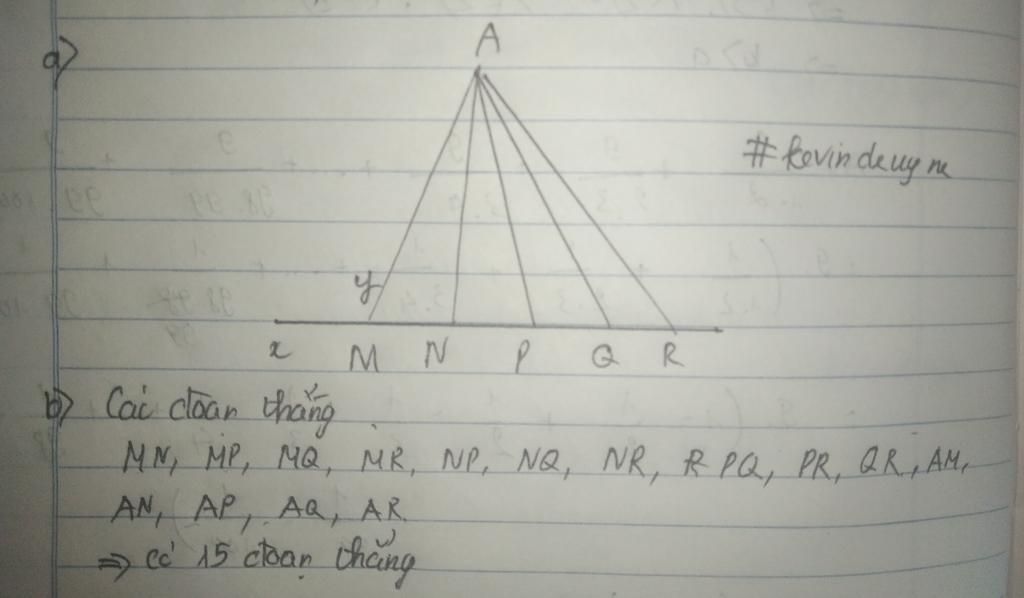 a)
A
# kevin deuyne
y
x M N P Q R
b) Các đoạn thẳng
MN, MP, MQ, MR, NP, NQ, NR, PQ, PR, QR, AM,
AN, AP, AQ, AR
=> có 15 đoạn thẳng